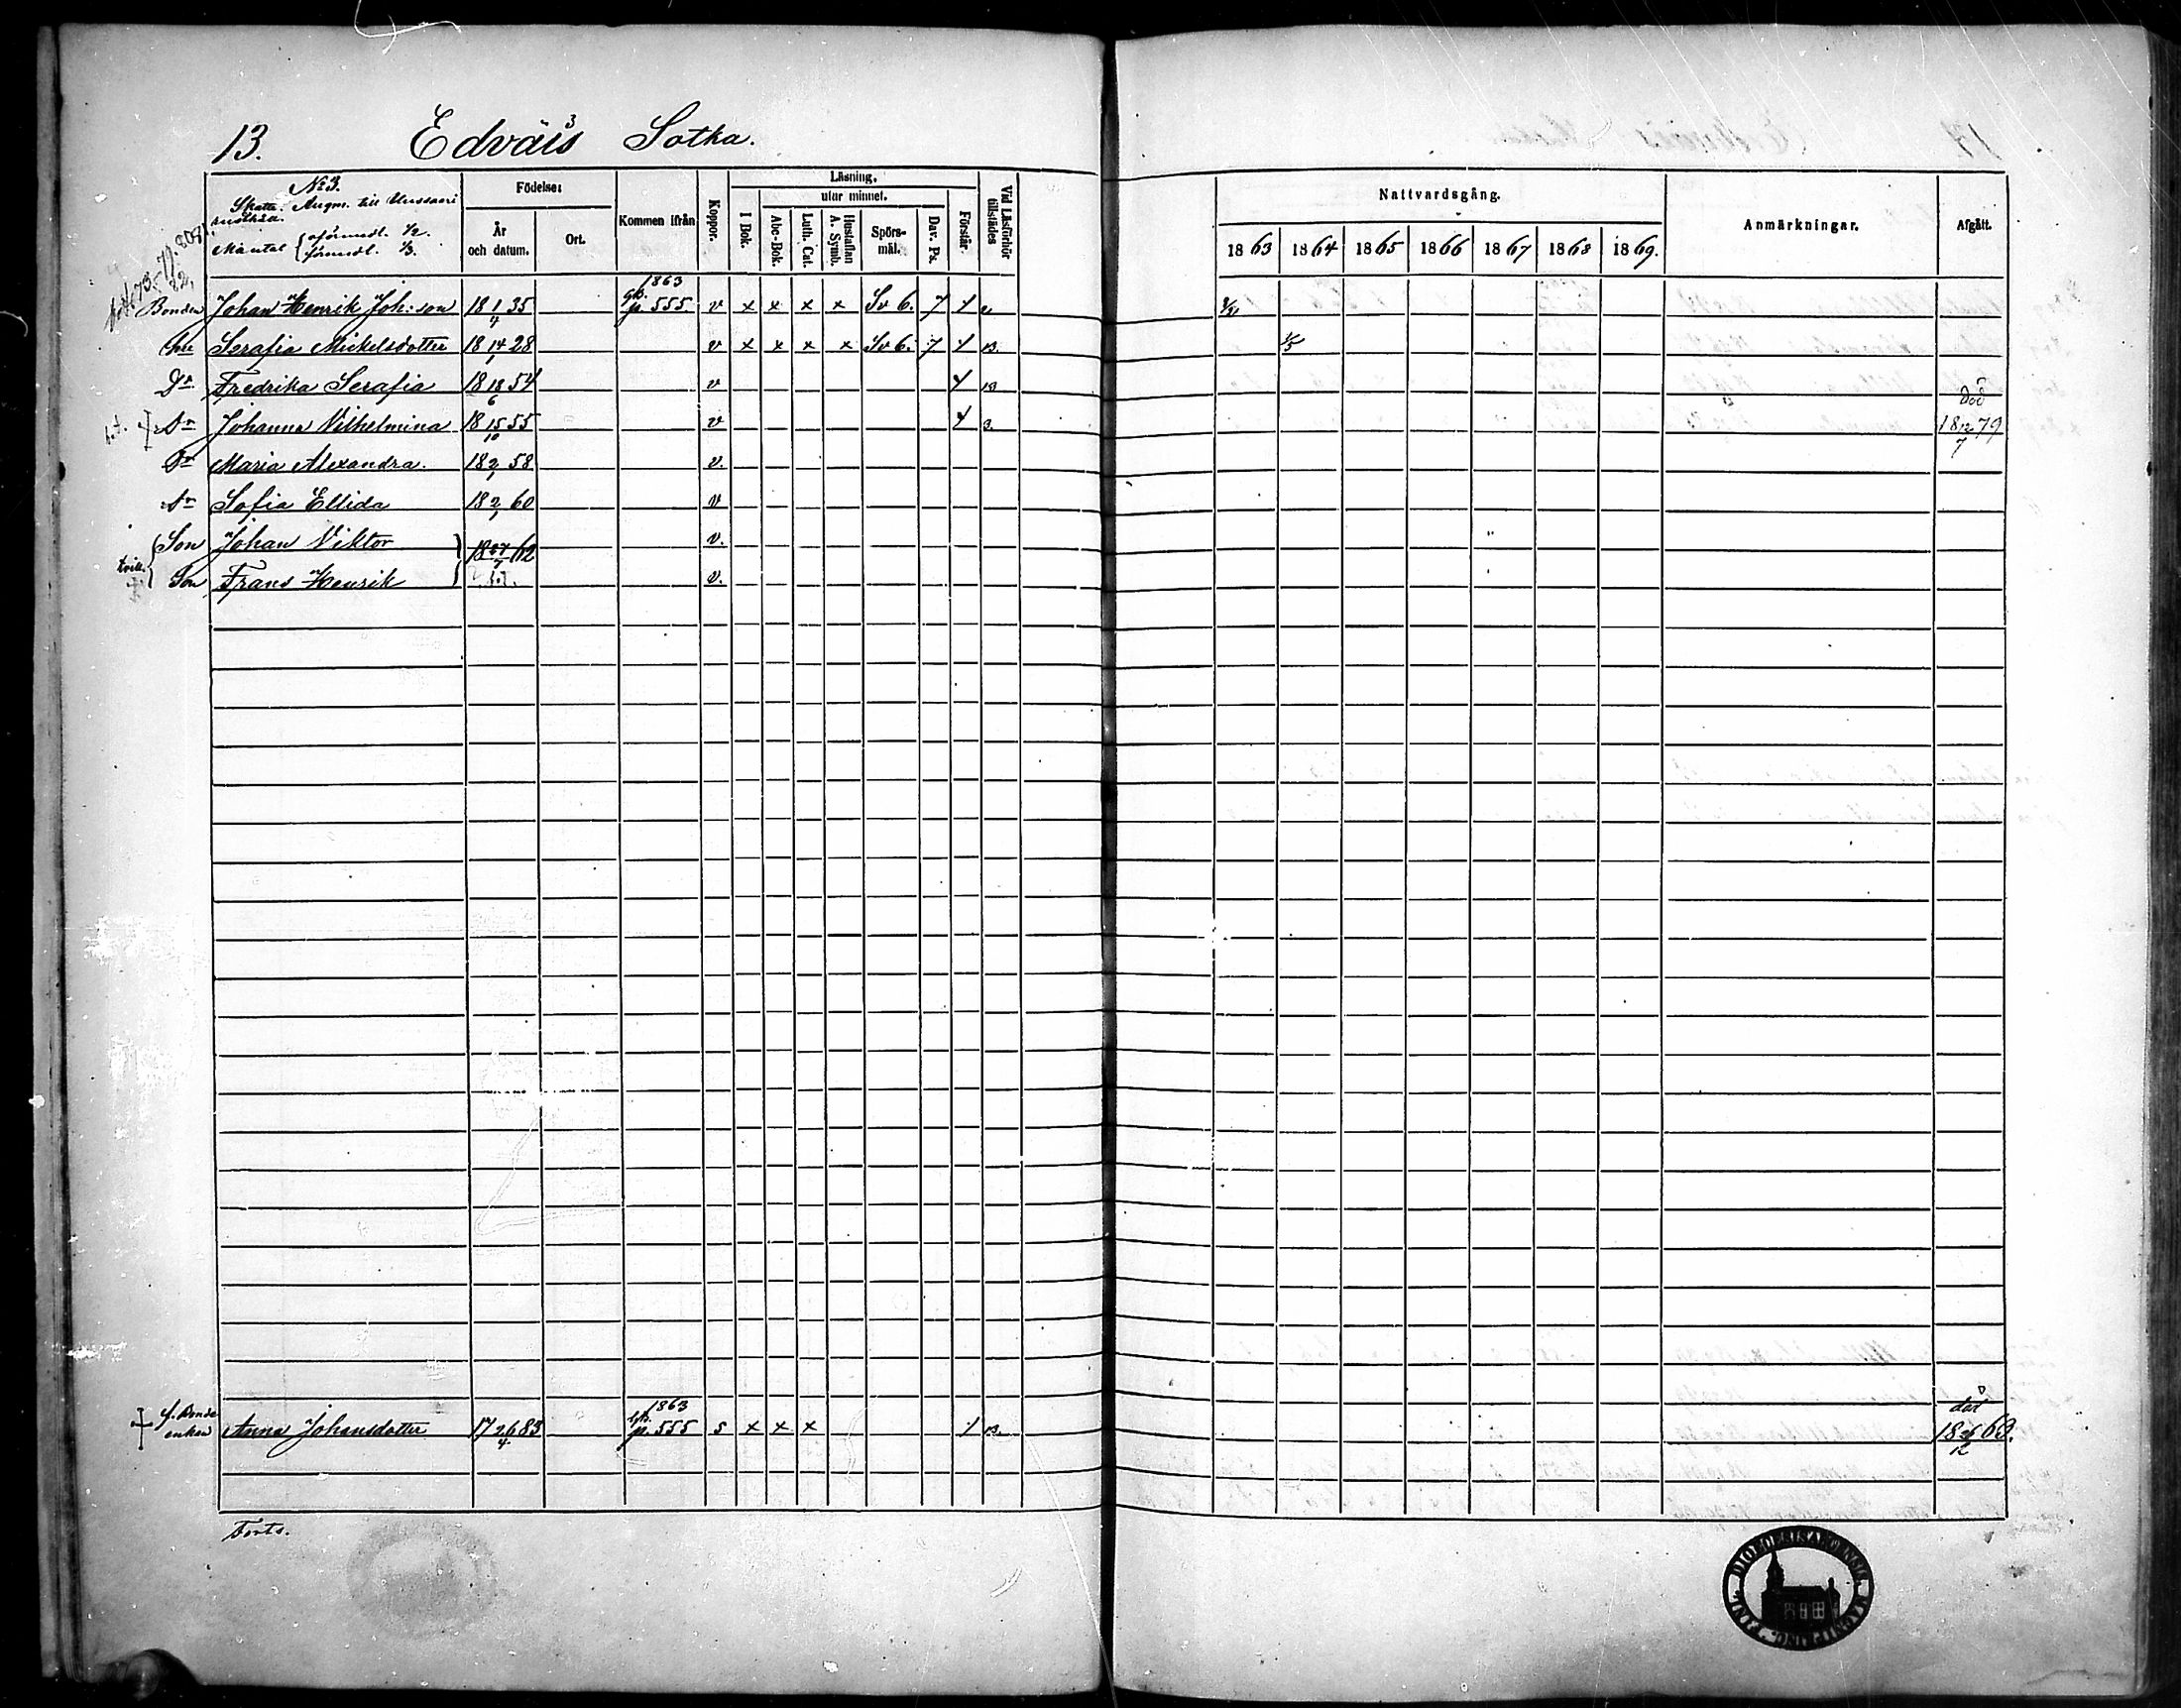 13. Edväis Sotka.
No 3.
Skatte. Augm. till Uussaari
rusthåll.
Mantal { oförmedl. 1/2.
förmedl. 1/3.
Födelse:
År och datum.
Ort.
Kommen ifrån
Koppor.
Läsning.
I Bok.
utur minnet.
Abc-Bok.
Luth. Cat.
Hustaflan A. Symb.
Spörsmål.
Dav. Ps.
Förstår.
Vid Läsförhör tillstädes
Nattvardsgång.
1863 1864 1865 1866 1867 1868 1869.
Anmärkningar.
Afgått.
1863
Bonden Johan Henrik Joh:son 18 1/4 35 p. 555. v x x x x Sv 6. 7
Serafia Mickelsdotter 18 14/1 28 v x x x x Sv 6. 7
Dr Fredrika Serafia 18 18/6 54 v
död
Dr Johanna Vilhelmina 18 15/10 55 v 3. 18 12/7 79
Dr Maria Alexandra. 18 2/1 58 v.
Dr Sofia Ellida 18 2/1 60 v
Son Johan Viktor 18 27/7 62 v.
tvill.
Son Frans Henrik v.
1863
död
f. Bonde enkan Anna Johansdotter 17 26/4 83 p. 555 s x x x 18 26/12 63.
Forts.